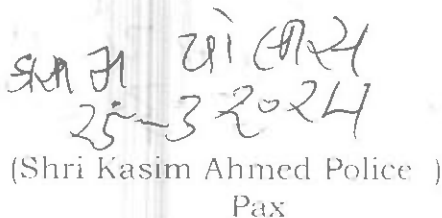 पोलीस
25-3 2024
(Shri Kasim Ahmed Police )
Pax